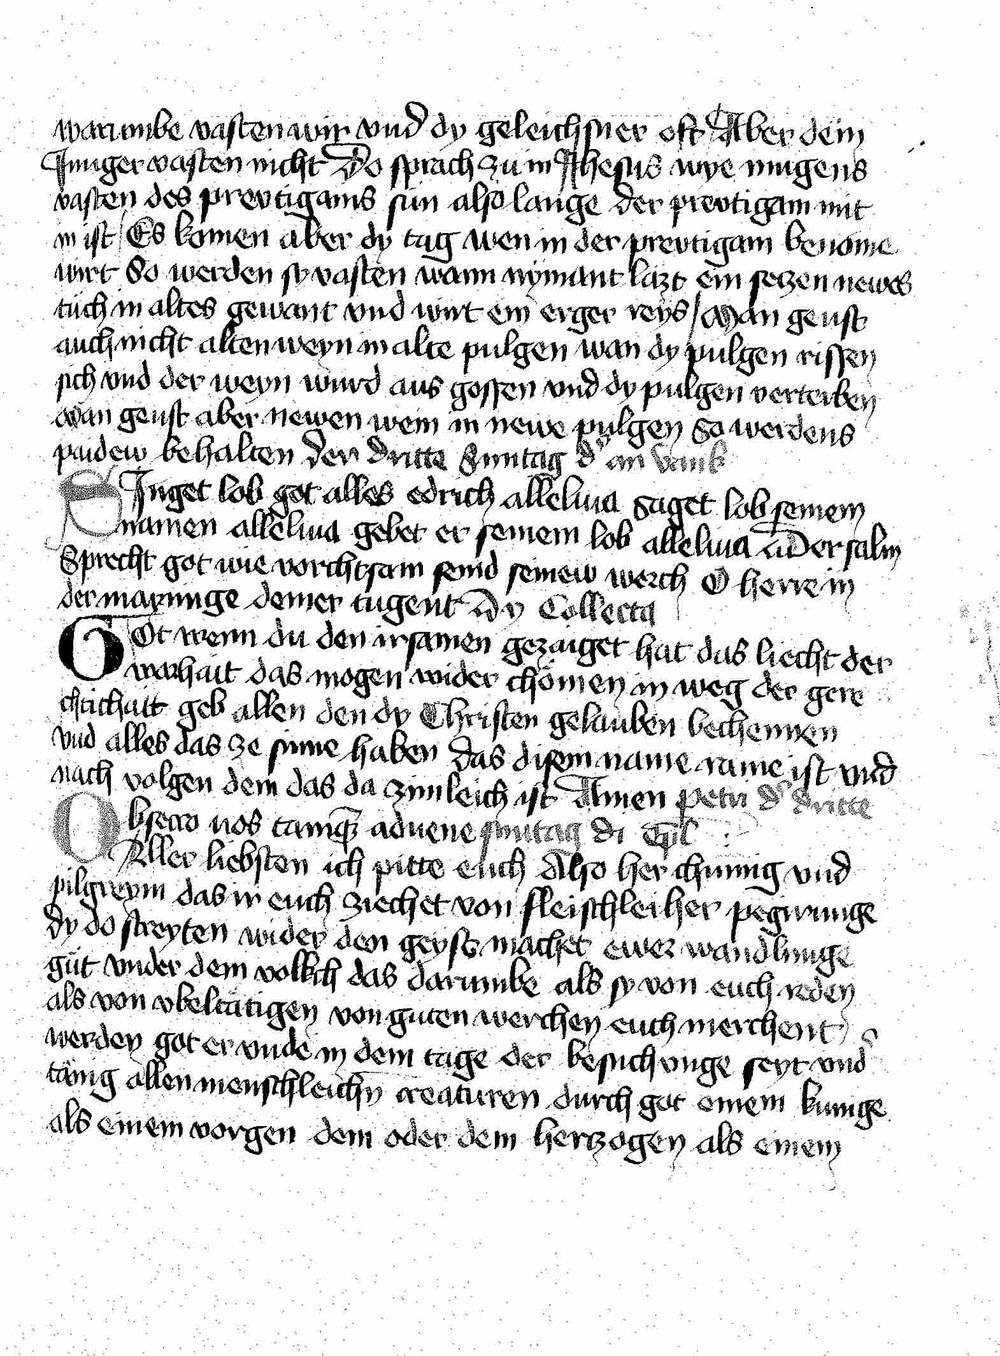 warumbe vasten wir vnd dy geleichsner oft Aber dein
Iunger vasten nicht Do sprach zu in Ihesus wye mugens
vasten des prevtigams sun also lange der prevtigam mit
in ist / Es komen aber dy tag wen in der prevtigam benome
wirt So werden sy vasten wann nymant lazt ein sezen newes
tuch in altes gewant vnd wirt ein erger reys / Man geust
auch nicht alten weyn in alte pulgen wan dy pulgen rissen
sich vnd der weyn wurd aus gossen vnd dy pulgen verterben
Man geust aber newen wein in newe pulgen So werdens
paidew behalten Der dritte Suntag d' an vank
SInget lob got alles edrich alleluia Saget lob seinem
namen alleluia gebet er seinem lob alleluia Der salm
Sprecht got wie vorchtsam seind seinew werch O herre in
der manunge deiner tugent Dy Collecta
GOt wenn du den irsamen gezaiget hat das liecht der
warhait das mogen wider chömen in weg der gere
chtichait geb allen den dy Christen gelauben bechennen
vnd alles das ze sinne haben das disem name name ist vnd
nach volgen dem das da zimleich ist Amen Petri d' dritte
Obsecro uos tamq̄ aduene suntag di ep̄l
Aller liebsten ich pitte euch Also her chunig vnd
pilgreym das ir euch ziechet von fleischleiher pegirunge
dy do streyten wider den geyst machet ewer wandlunge
güt vnder dem volkch das darumbe als sy von euch reden
als von vbeltätigen von guten werchen euch merchent
werden got er vnde in dem tage der besuchunge seyt vnd'
täing allen menschleichn creaturen durch got einem kunige
als einem vorgen dem oder dem herzogen als einem